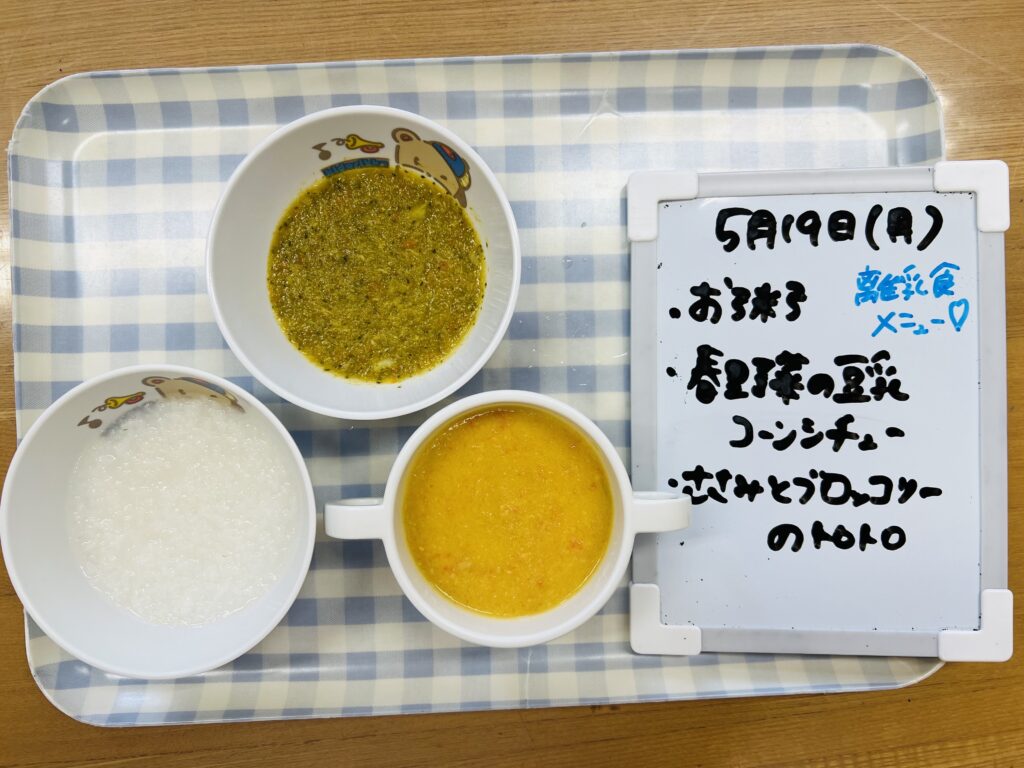 5月19日(月)
離乳食
メニュー♡
・春野菜の豆乳
コーンシチュー
・ささみとブロッコリー
のトロトロ